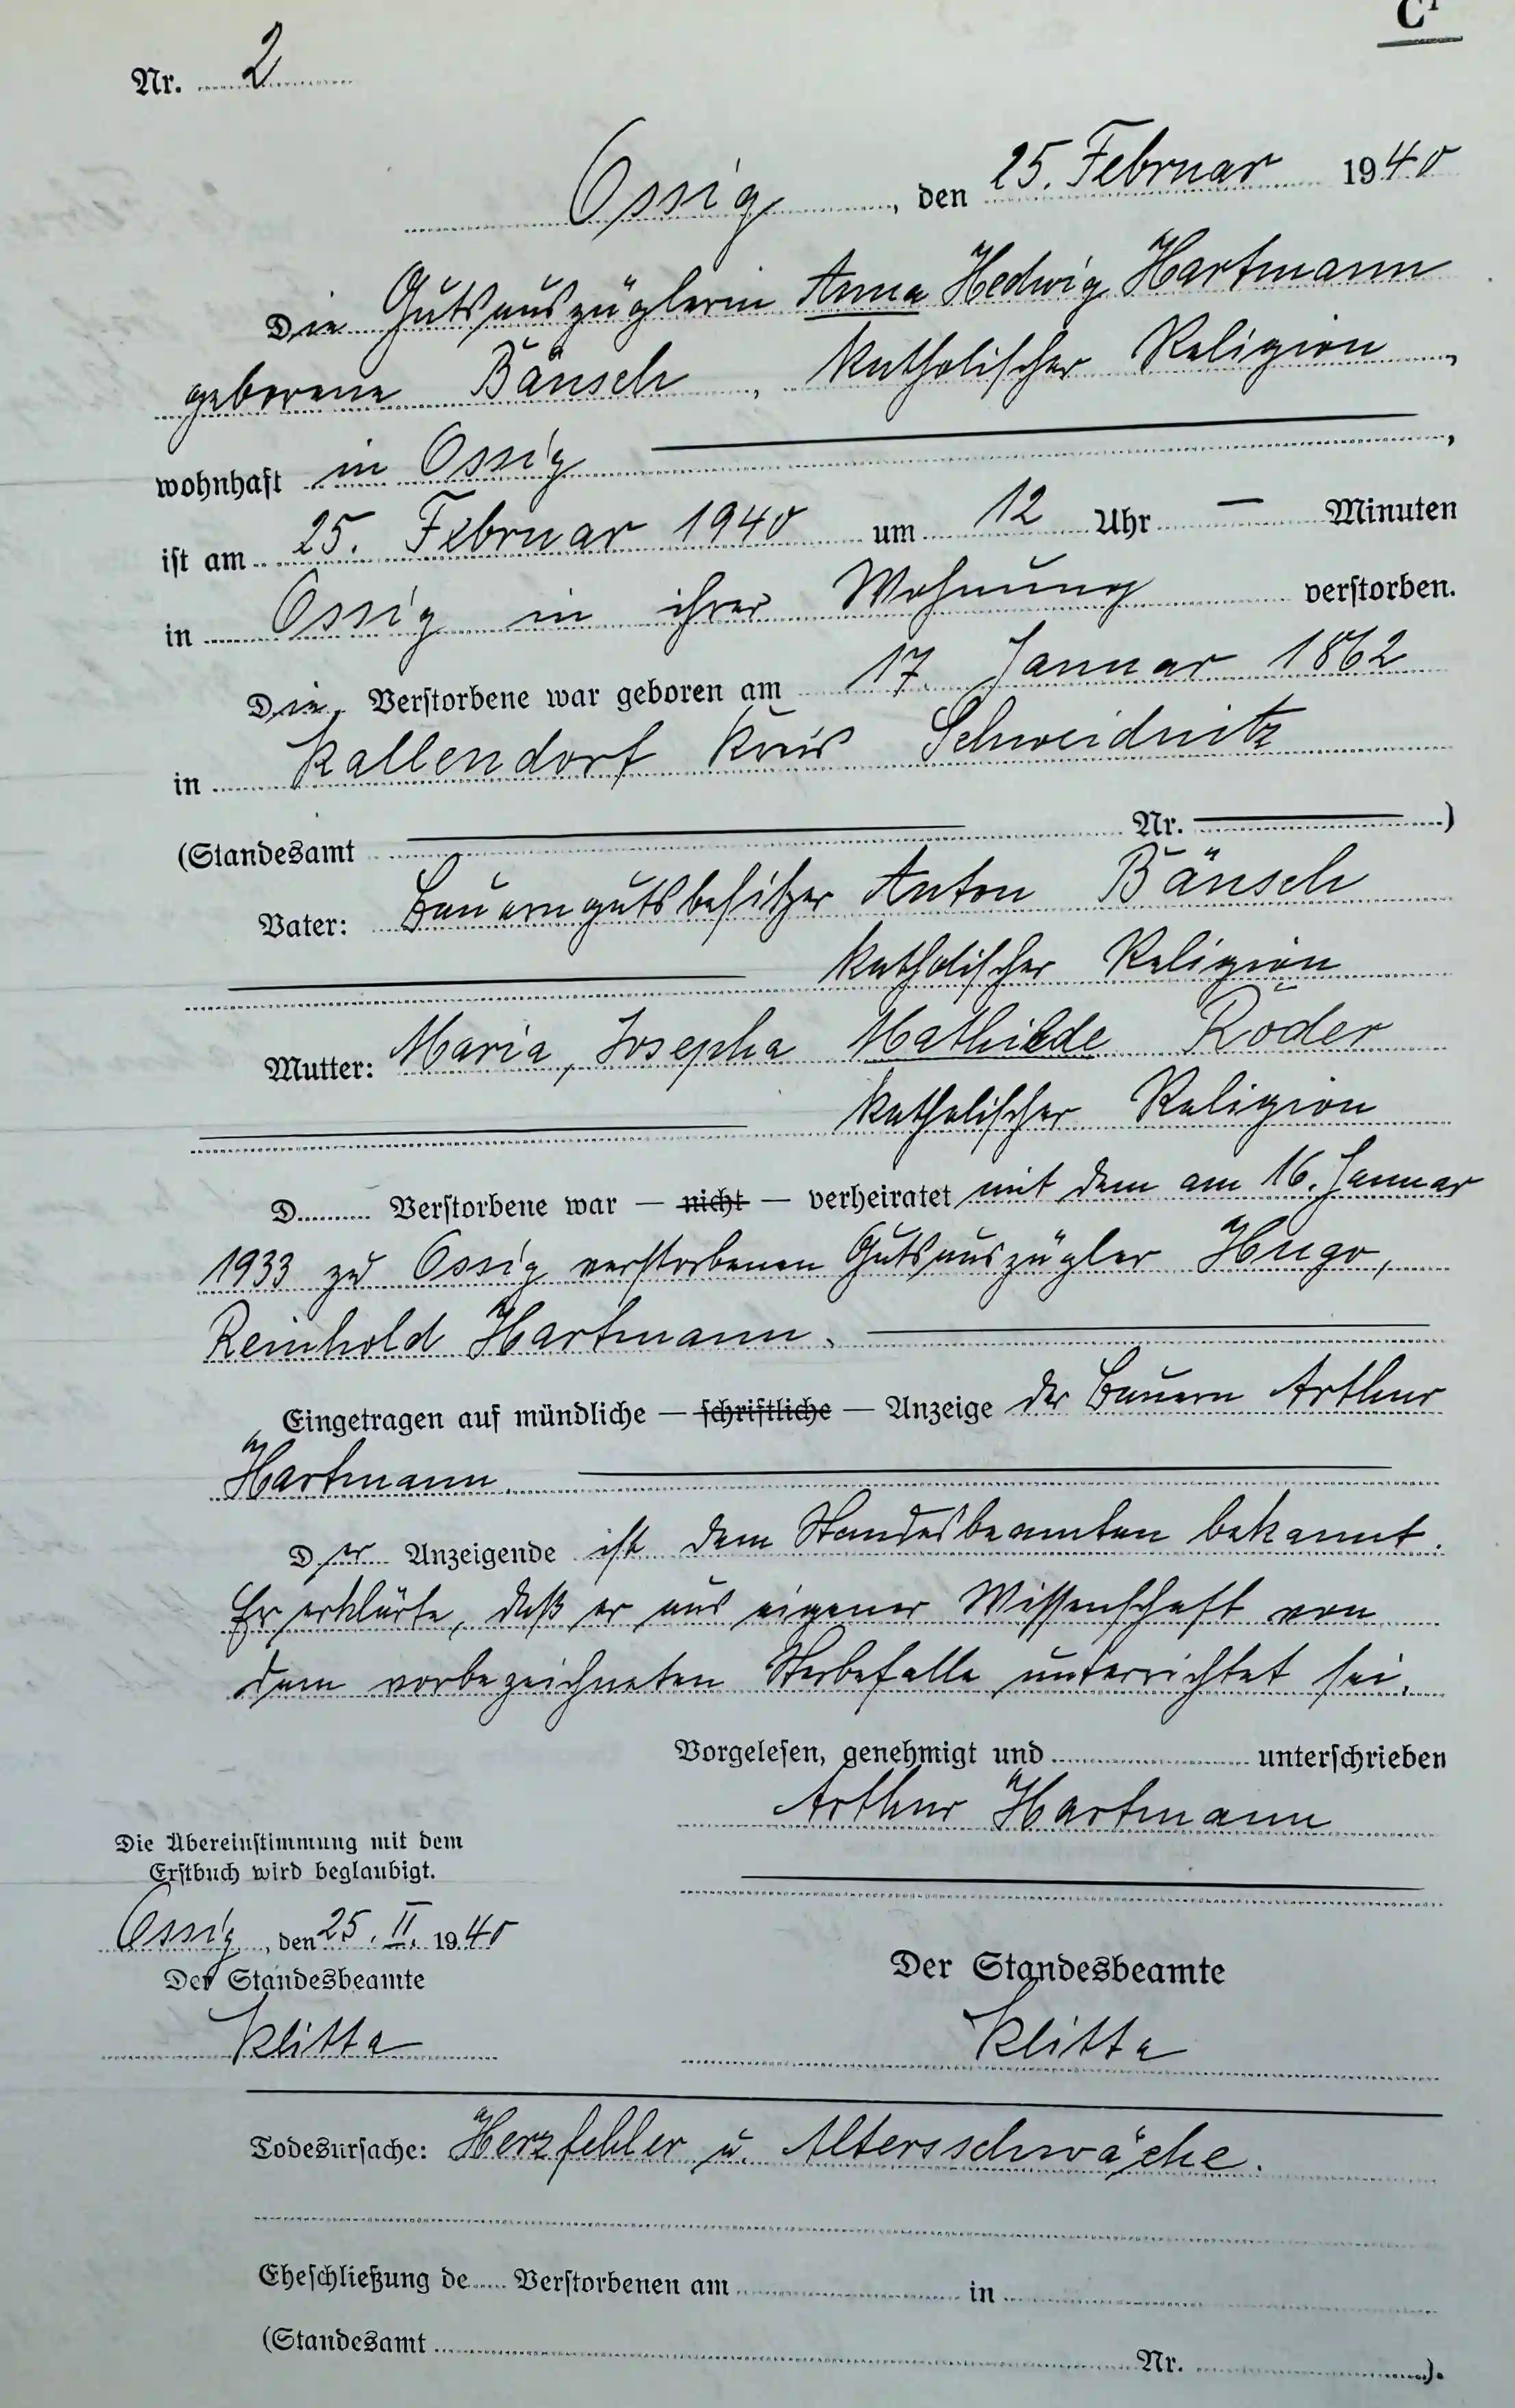 C¹
Nr. 2
Ossig, den 25. Februar 1940
Die Gutsauszüglerin Anna Hedwig Hartmann
geborene Bänsch, katholischer Religion,
wohnhaft in Ossig,
ist am 25. Februar 1940 um 12 Uhr — Minuten
in Ossig in ihrer Wohnung verstorben.
Die Verstorbene war geboren am 17. Januar 1862
in Kallendorf Kreis Schweidnitz
(Standesamt Nr. )
Vater: Bauerngutsbesitzer Anton Bänsch
katholischer Religion
Mutter: Maria, Josepha Mathilde Röder
katholischer Religion
D Verstorbene war — nicht — verheiratet mit dem am 16. Januar
1933 zu Ossig verstorbenen Gutsauszügler Hugo,
Reinhold Hartmann.
Eingetragen auf mündliche — schriftliche — Anzeige der Bauern Arthur
Hartmann.
Der Anzeigende ist dem Standesbeamten bekannt.
Er erklärte, daß er aus eigener Wissenschaft von
dem vorbezeichneten Sterbefalle unterrichtet sei.
Vorgelesen, genehmigt und unterschrieben
Arthur Hartmann
Die Übereinstimmung mit dem
Erstbuch wird beglaubigt.
Ossig, den 25. II. 1940
Der Standesbeamte
Klitta
Der Standesbeamte
Klitta
Todesursache: Herzfehler u. Altersschwäche.
Eheschließung de Verstorbenen am in
(Standesamt Nr. ).